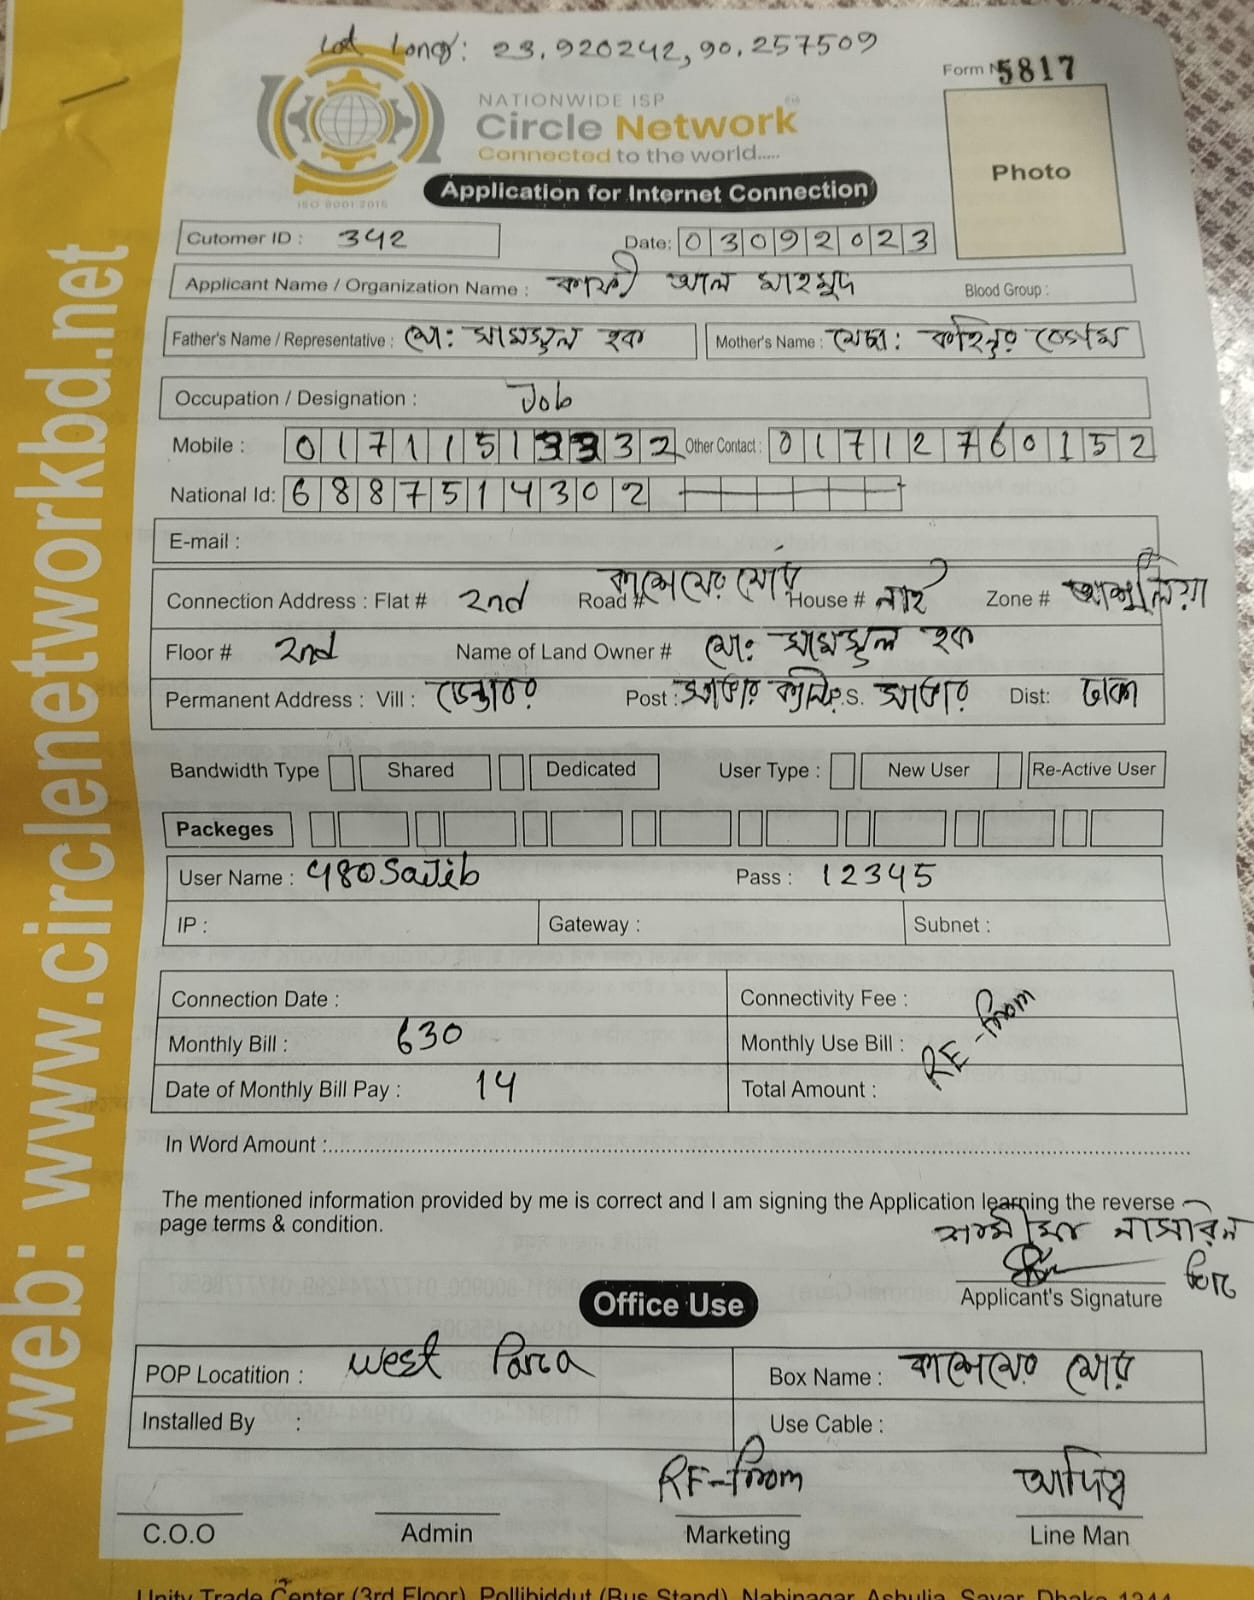 Lat Long: 23.920242, 90.257509
Form № 5817
NATIONWIDE ISP
Circle Network
Connected to the world.....
ISO 9001:2015
Photo
Application for Internet Connection
Cutomer ID : 342 Date: 03092023
Applicant Name / Organization Name : কাফী আল মাহমুদ Blood Group :
Father's Name / Representative : মো: সামসুল হক Mother's Name : মোছা: কহিনুর বেগম
Occupation / Designation : Job
Mobile : 01711513332 Other Contact : 01712760152
National Id: 6887514302
E-mail :
Connection Address : Flat # 2nd Road # কাশেমের মোড় House # নাই Zone # আশুলিয়া
Floor # 2nd Name of Land Owner # মো: সামসুল হক
Permanent Address : Vill : ডেন্ডাবর Post : সাভার P.S. সাভার Dist: ঢাকা
Bandwidth Type Shared Dedicated User Type : New User Re-Active User
Packeges
User Name : 480Sajib Pass : 12345
IP : Gateway : Subnet :
Connection Date : Connectivity Fee :
Monthly Bill : 630 Monthly Use Bill : RE-from
Date of Monthly Bill Pay : 14 Total Amount :
In Word Amount :
The mentioned information provided by me is correct and I am signing the Application learning the reverse
page terms & condition.
নাসরিন
Applicant's Signature
Office Use
POP Locatition : west Para Box Name : কাশেমের মোড়
Installed By : Use Cable :
RF-from
C.O.O Admin Marketing Line Man
Unity Trade Center (3rd Floor), Pollibiddut (Bus Stand), Nabinagar, Ashulia, Savar, Dhaka-1344
web: www.circlenetworkbd.net